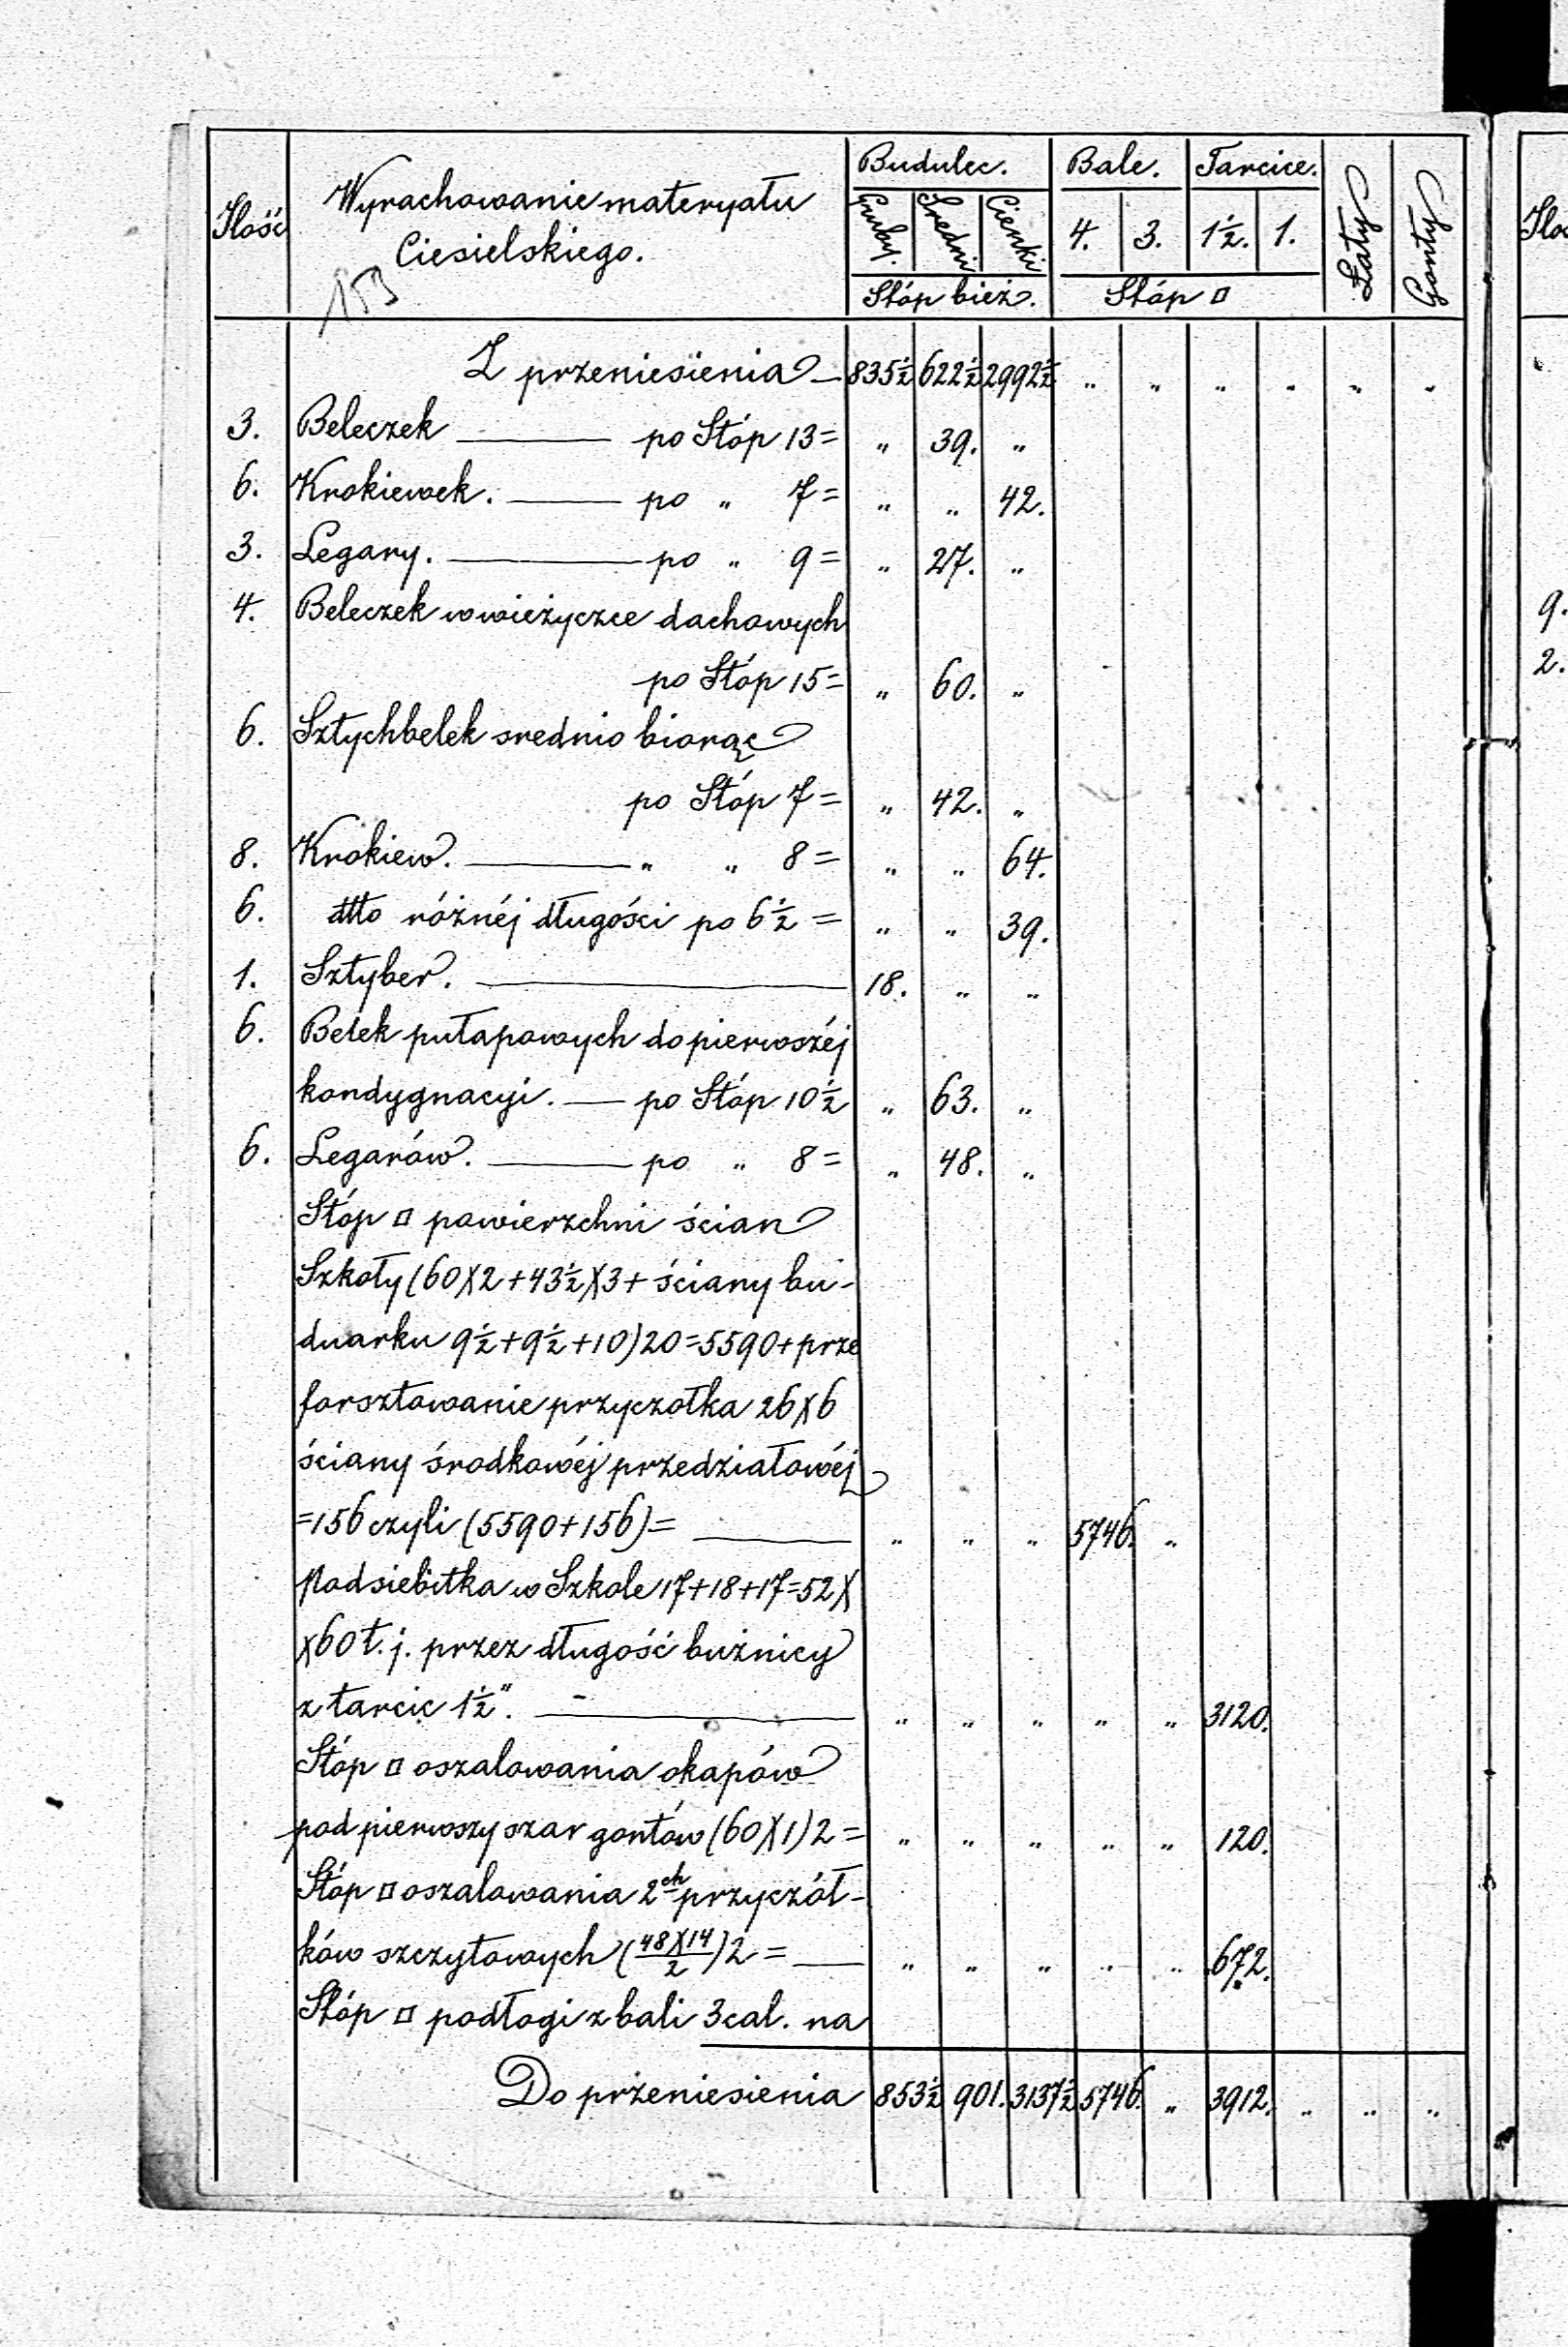 Ilość Wyrachowanie materyału Ciesielskiego. Budulec. Bale. Tarcice. Łaty Gonty
Gruby. Średni Cienki 4. 3. 1½. 1.
Stóp bież. Stóp □
153
Z przeniesienia — 835½ 622½ 2992½ " " " " " "
3. Beleczek — po Stóp 13 = " 39. "
6. Krokiewek. — po " 7 = " " 42.
3. Legary. — po " 9 = " 27. "
4. Beleczek w wieżyczce dachowych
po Stóp 15 = " 60. "
6. Sztychbelek srednio biorąc
po Stóp 7 = " 42. "
8. Krokiew. — " " 8 = " " 64.
6. dtto różnéj długości po 6½ = " " 39.
1. Sztyber. — 18. " "
6. Belek pułapowych do pierwszéj
kondygnacyi. — po Stóp 10½ " 63. "
6. Legarów. — po " 8 = " 48. "
Stóp □ powierzchni ścian
Szkoły (60 X 2 + 43½ X 3 + ściany bu-
duarku 9½ + 9½ + 10) 20 = 5590 + prze
forsztowanie przyczołka 26 X 6
ściany środkowéj przedziałowéj
= 156 czyli (5590 + 156) = — " " " 5746. "
Podsiebitka w Szkole 17 + 18 + 17 = 52 X
X 60 t. j. przez długość bużnicy
z tarcic 1½". — " " " " " 3120.
Stóp □ oszalowania okapów
pod pierwszy szar gontów (60 X 1) 2 = " " " " " 120.
Stóp □ oszalowania 2ch przyczół-
ków szczytowych (48 X 14 / 2) 2 = — " " " " " 672.
Stóp □ podłogi z bali 3 cal. na
Do przeniesienia 853½ 901. 3137½ 5746. " 3912. " " "
Iloś
9.
2.